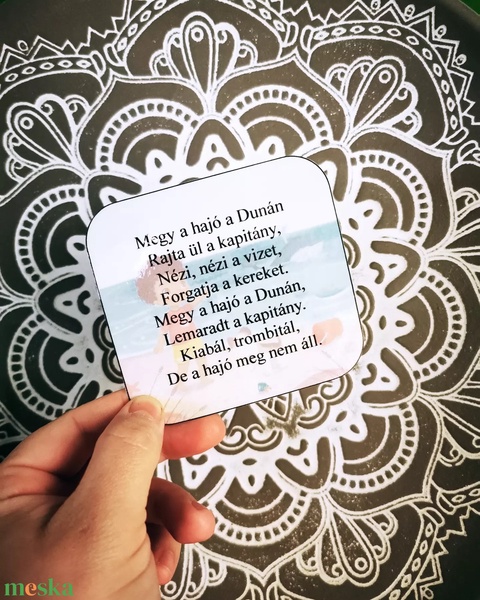 Megy a hajó a Dunán
Rajta ül a kapitány,
Nézi, nézi a vizet,
Forgatja a kereket.
Megy a hajó a Dunán,
Lemaradt a kapitány.
Kiabál, trombitál,
De a hajó meg nem áll.
meska